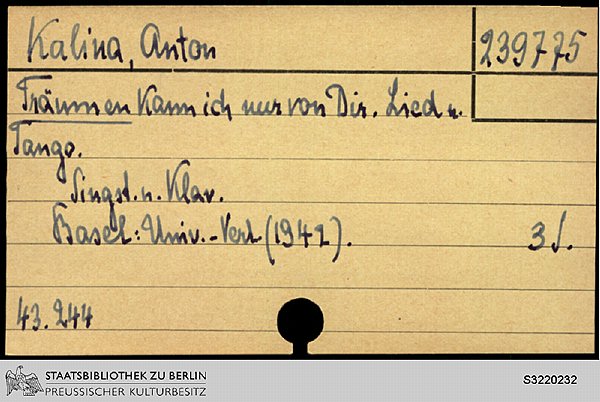 Kalina, Anton
239775
Träumen kann ich nur von Dir. Lied u.
Tango.
Singst. u. Klav.
Basel: Univ.-Verl. (1942).
3 S.
43.244
STAATSBIBLIOTHEK ZU BERLIN
PREUSSISCHER KULTURBESITZ
S3220232